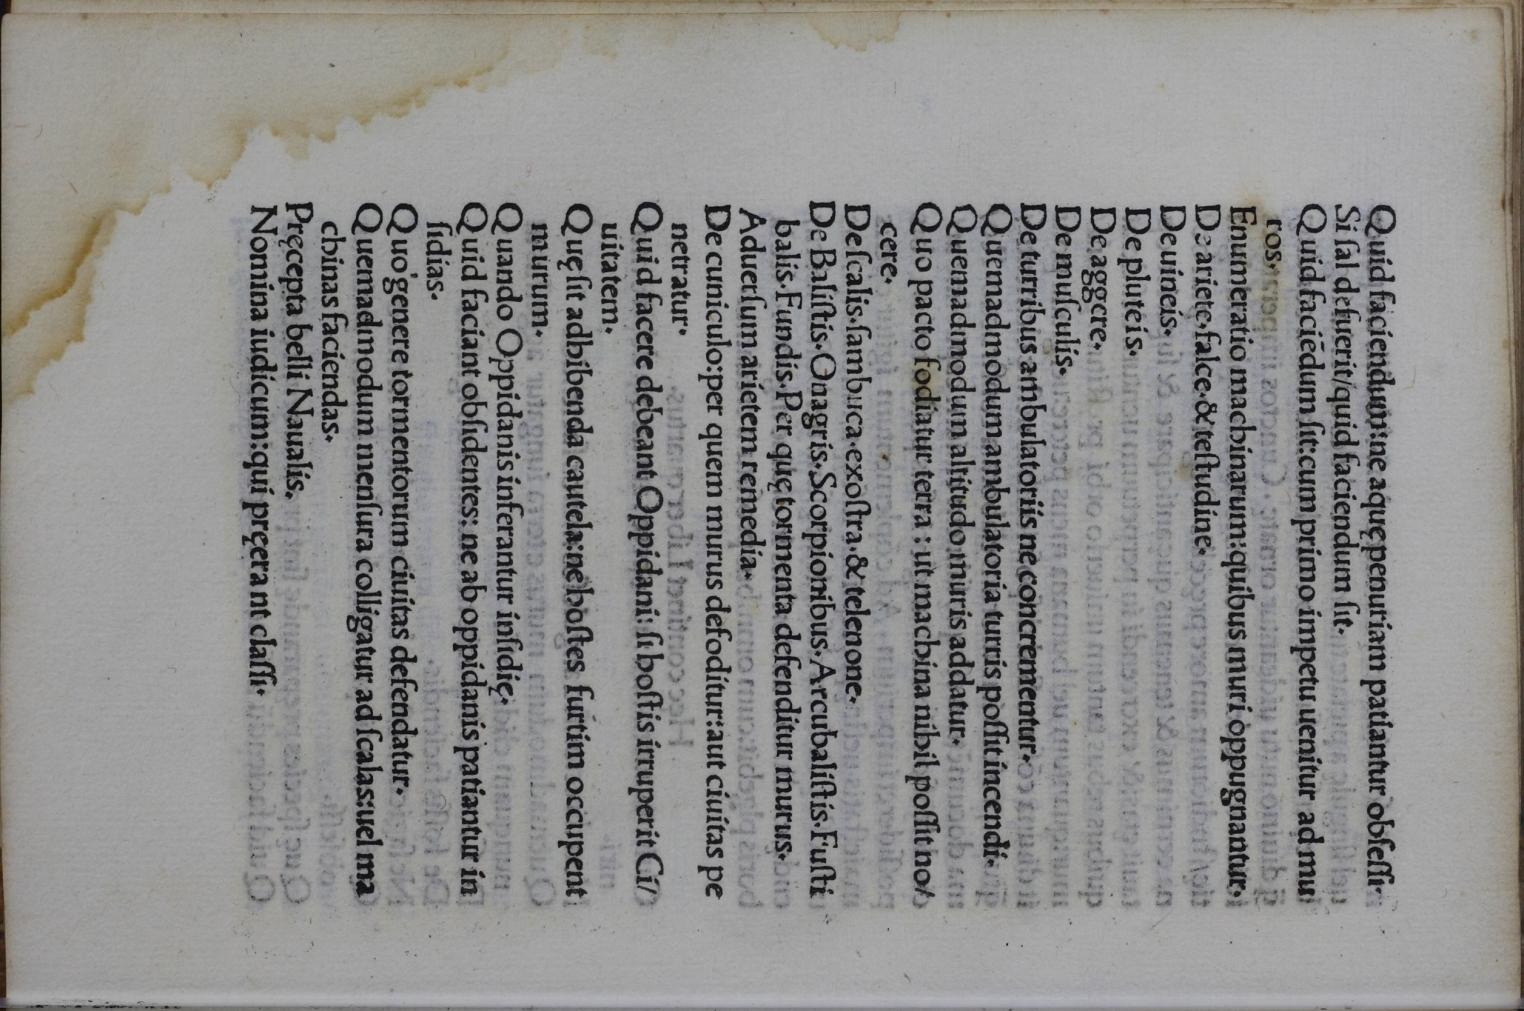 Quid faciendum:ne aquę penuriam patiantur obſeſſi.
Si ſal defuerit/quid faciendum ſit.
Quid faciēdum ſit:cum primo impetu uenitur ad mu
ros.
Enumeratio machinarum:quibus muri oppugnantur.
De ariete.falce.&teſtudine.
De uineis.
De pluteis.
De aggere.
De muſculis.
De turribus ambulatoriis ne concrementur.
Quemadmodum ambulatoria turris poſſit incendi.
Quemadmodum altitudo muris addatur.
Quo pacto fodiatur terra : ut machina nihil poſſit no/
cere.
De ſcalis.ſambuca.exoſtra.&telenone.
De Baliſtis.Onagris.Scorpionibus.Arcubaliſtis.Fuſti
balis.Fundis.Per quę tormenta defenditur murus.
Aduerſum arietem remedia.
De cuniculo:per quem murus defoditur:aut ciuitas pe
netratur.
Quid facere debeant Oppidani: ſi hoſtis irruperit Ci/
uitatem.
Quę ſit adhibenda cautela:ne hoſtes furtim occupent
murum.
Quando Oppidanis inferantur inſidię.
Quid faciant obſidentes: ne ab oppidanis patiantur in
ſidias.
Quo' genere tormentorum ciuitas defendatur.
Quemadmodum menſura colligatur ad ſcalas:uel ma
chinas faciendas.
Pręcepta belli Naualis.
Nomina iudicum:qui pręera nt claſſi.